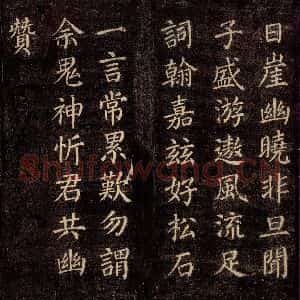 日崖幽曉非旦聞
子盛游遨風流足
詞翰嘉玆好松石
一言常累歎勿謂
余鬼神忻君共幽
贊
Shufawang.CN